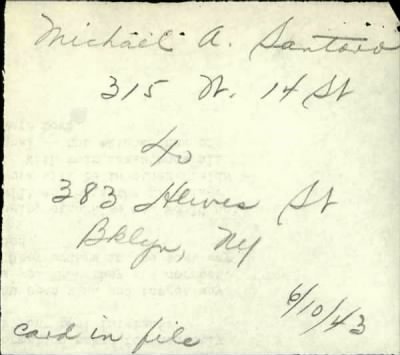 Michael A. Santoro
315 W. 14 St
to
383 Hewes St
Bklyn, NY
6/10/43
card in file